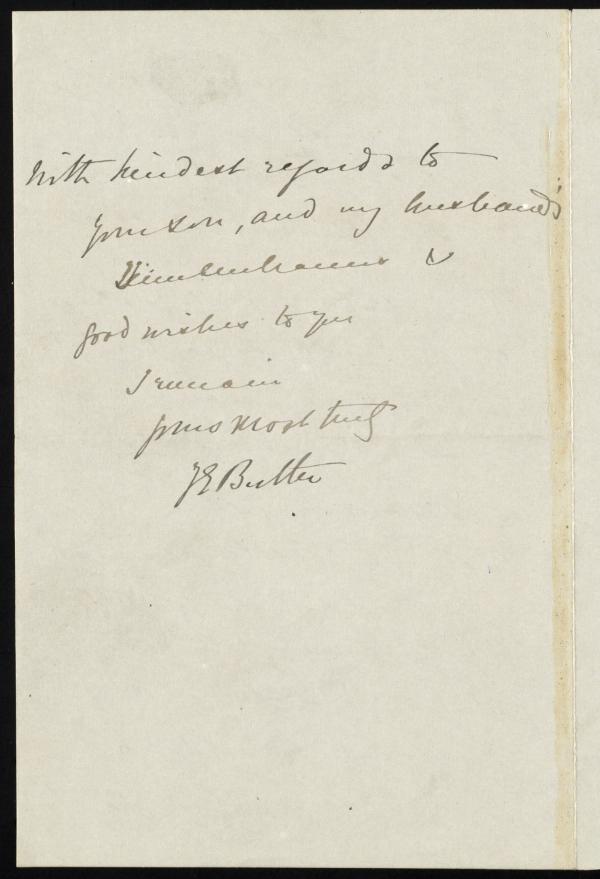 With kindest regards to
your son, and my husband's
remembrances &
good wishes to you
I remain
yours most truly
J E Butler